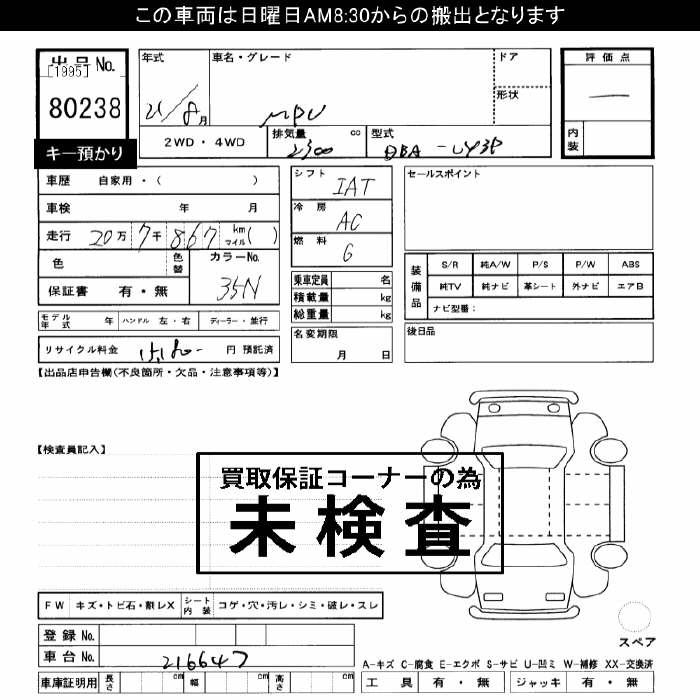 この車両は日曜日AM8:30からの搬出となります
出品No.
[1995]
80238
キー預かり
年式
21/8月
車名・グレード
MPV
ドア
形状
2WD・4WD
排気量 cc
2300
型式
DBA-LY3P
評価点
―
内装
車歴 自家用・( )
車検 年 月
走行 20万 7千 867 km マイル( )
色 色替
カラーNo.
35N
保証書 有・無
モデル年式 年 ハンドル 左・右 ディーラー・並行
リサイクル料金 15,180- 円 預託済
シフト
IAT
冷房
AC
燃料
G
乗車定員 名
積載量 kg
総重量 kg
名変期限
月 日
セールスポイント
装備品
S/R 純A/W P/S P/W ABS
純TV 純ナビ 革シート 外ナビ エアB
ナビ型番:
後日品
【出品店申告欄(不良箇所・欠品・注意事項等)】
【検査員記入】
買取保証コーナーの為
未検査
FW キズ・トビ石・割レX シート内装 コゲ・穴・汚レ・シミ・破レ・スレ
登録No.
車台No. 216647
車庫証明用 長さ cm 幅 cm 高さ cm
スペア
A-キズ C-腐食 E-エクボ S-サビ U-凹ミ W-補修 XX-交換済
工具 有・無 ジャッキ 有・無